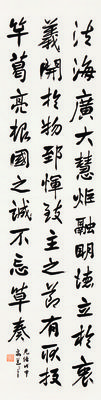 法海廣大慧炬融明法立於衷
義開於物郅惲致主之節有所投
竿葛亮報國之誠不忘草奏